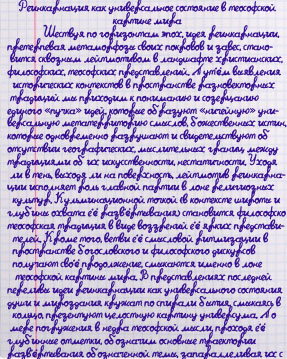 Реинкарнация как универсальное состояние в теософской
картине мира
Шествуя по горизонтам эпох, идея реинкарнации,
претерпевая метаморфозы своих покровов и завес, стано-
вится сквозным лейтмотивом в ландшафте христианских,
философских, теософских представлений. А путём выявления
исторических контекстов в пространстве разновекторных
традиций мы приходим к пониманию и созерцанию
единого «пучка» идей, которые образуют «нитейную» уни-
версальную метатерриторию смыслов, божественных истин,
которые одновременно разрушают и свидетельствуют об
отсутствии географических, мыслительных границ между
традициями об их искусственности, нестатичности. Уходя
ли в тень, выходя ли на поверхность, лейтмотив реинкарна-
ции исполняет роль главной партии в лоне религиозных
культур. Кульминационной точкой (в контексте широты и
глубины охвата её развёртывания) становится философско
теософская традиция в виде воззрений её ярких представи-
телей. Кроме того, ветви её смысловой ритмизации в
пространстве богословского и философского дискурсов
получают своё продолжение, смыкаются именно в лоне
теософской картины мира. В представлениях последней
переливы идеи реинкарнации как универсального состояния
души и мироздания кружат по спирали бытия, смыкаясь в
кольцо, презентуют целостную картину универсума. А по
мере погружения в недра теософской мысли, проходя её
глубинные отметки, обозначим основные траектории
развёртывания обозначенной темы, запараллеливая их с